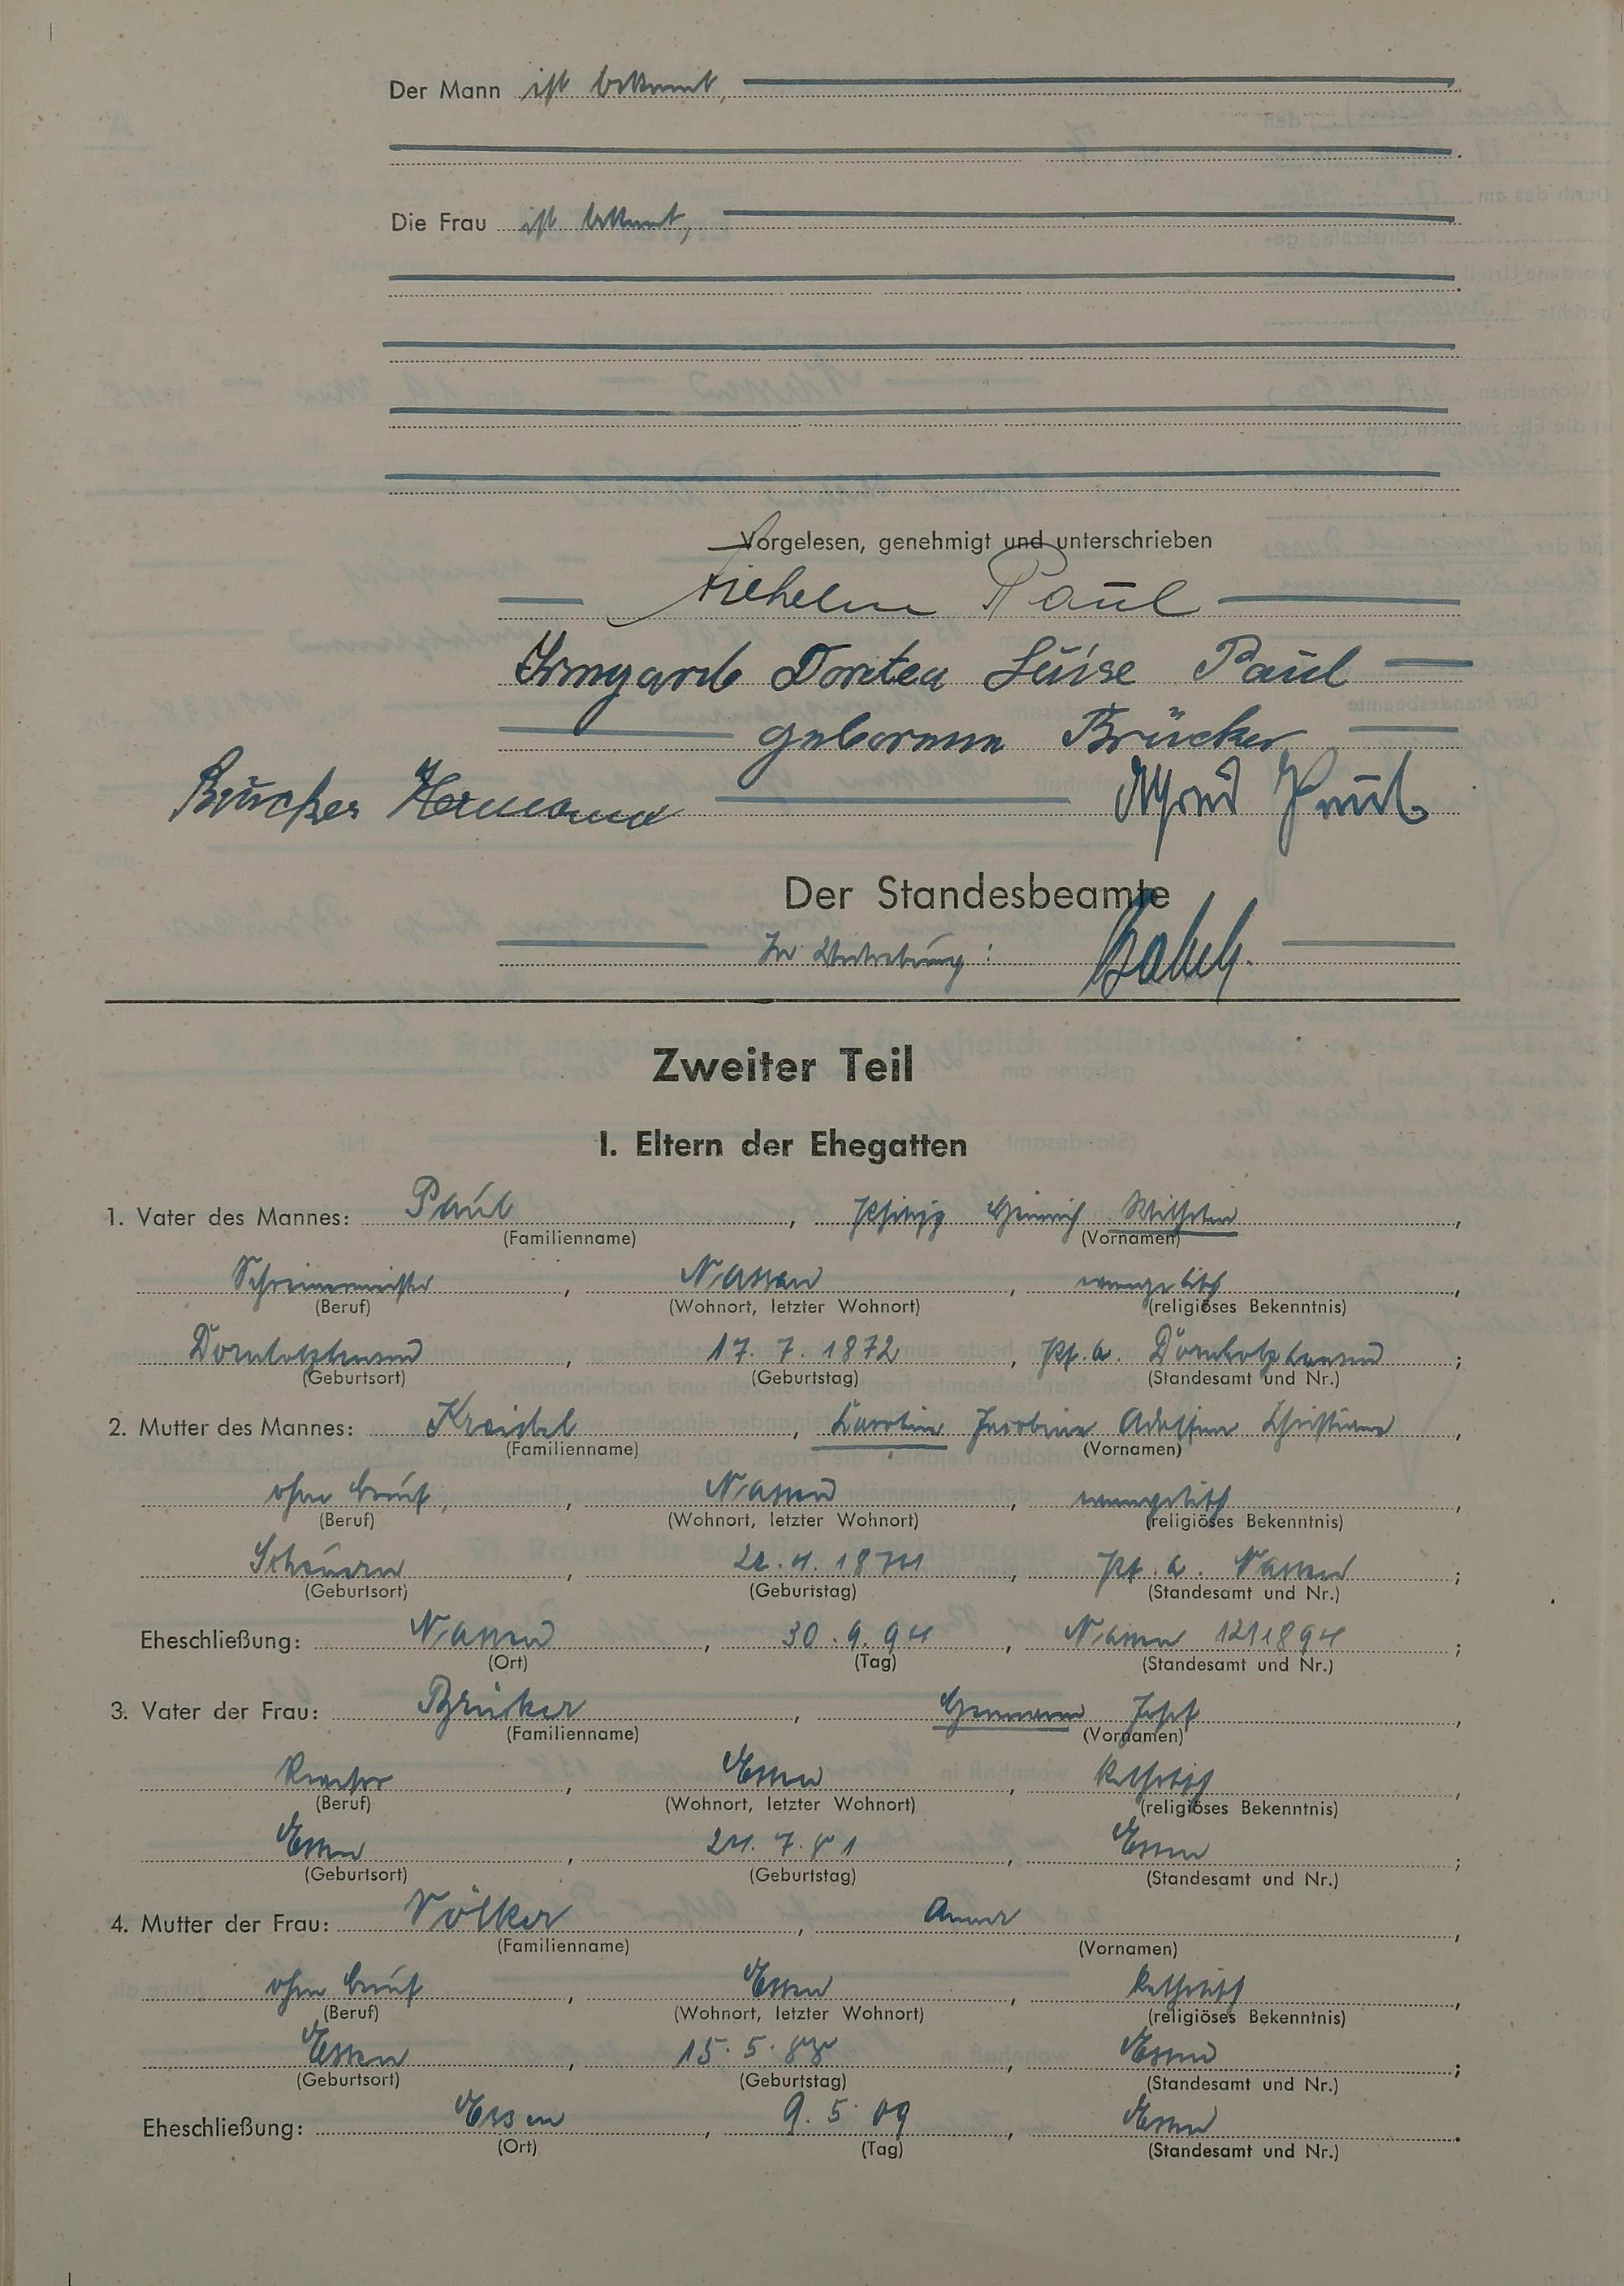 Der Mann ist bekannt,
Die Frau ist bekannt,
Vorgelesen, genehmigt und unterschrieben
Wilhelm Paul
Irmgard Dorotea Luise Paul
geborene Brücker
Brücker Hermann Alfred Paul
Der Standesbeamte
In Vertretung:
Zweiter Teil
I. Eltern der Ehegatten
1. Vater des Mannes: Paul, Philipp Heinrich Wilhelm,
(Familienname) (Vornamen)
Schreinermeister, Nassau, evangelisch,
(Beruf) (Wohnort, letzter Wohnort) (religiöses Bekenntnis)
Dornholzhausen, 17. 7. 1872, Pf. a. Dornholzhausen;
(Geburtsort) (Geburtstag) (Standesamt und Nr.)
2. Mutter des Mannes: Kreidel, Karoline Jacobine Adolfine Christiane,
(Familienname) (Vornamen)
ohne Beruf, Nassau, evangelisch,
(Beruf) (Wohnort, letzter Wohnort) (religiöses Bekenntnis)
Scheuern, 1874, Pf. a. Nassau;
(Geburtsort) (Geburtstag) (Standesamt und Nr.)
Eheschließung: Nassau, 30. 9. 94, Nassau 12/1894;
(Ort) (Tag) (Standesamt und Nr.)
3. Vater der Frau: Brücker, Hermann Josef,
(Familienname) (Vornamen)
Essen, katholisch,
(Beruf) (Wohnort, letzter Wohnort) (religiöses Bekenntnis)
Essen, 24. 7. 81, Essen;
(Geburtsort) (Geburtstag) (Standesamt und Nr.)
4. Mutter der Frau: Völker, Anna,
(Familienname) (Vornamen)
ohne Beruf, Essen, katholisch,
(Beruf) (Wohnort, letzter Wohnort) (religiöses Bekenntnis)
Essen, 15. 5. 88, Essen;
(Geburtsort) (Geburtstag) (Standesamt und Nr.)
Eheschließung: Essen, 9. 5. 09, Essen.
(Ort) (Tag) (Standesamt und Nr.)